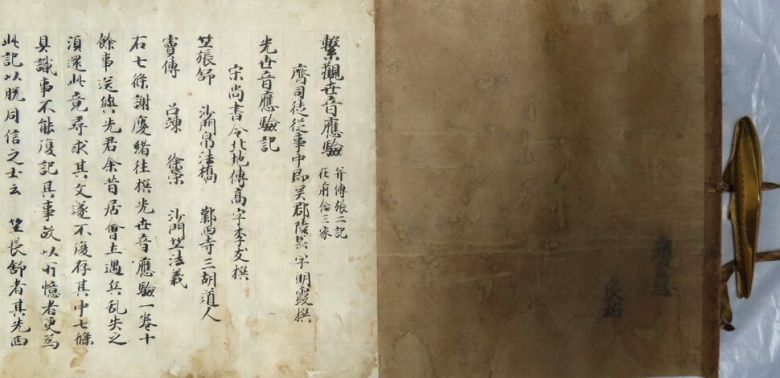 繫觀世音應驗
并傳張二記
在前合三家
齊司徒從事中郎吴郡陸杲字明霞撰
光世音應驗記
宋尚書令北地傳亮字季友撰
竺張舒 沙門帛法橋 鄴西寺三胡道人
竇傳 吕竦 徐榮 沙門竺法義
右七條謝慶緒往撰光世音應驗一卷十
餘事送與先君余昔居會土遇兵乱失之
頃還此竟尋求其文遂不復存其中七條
具識事不能復記其事故以所憶者更爲
此記以悅同信之士云 竺長舒者其先西